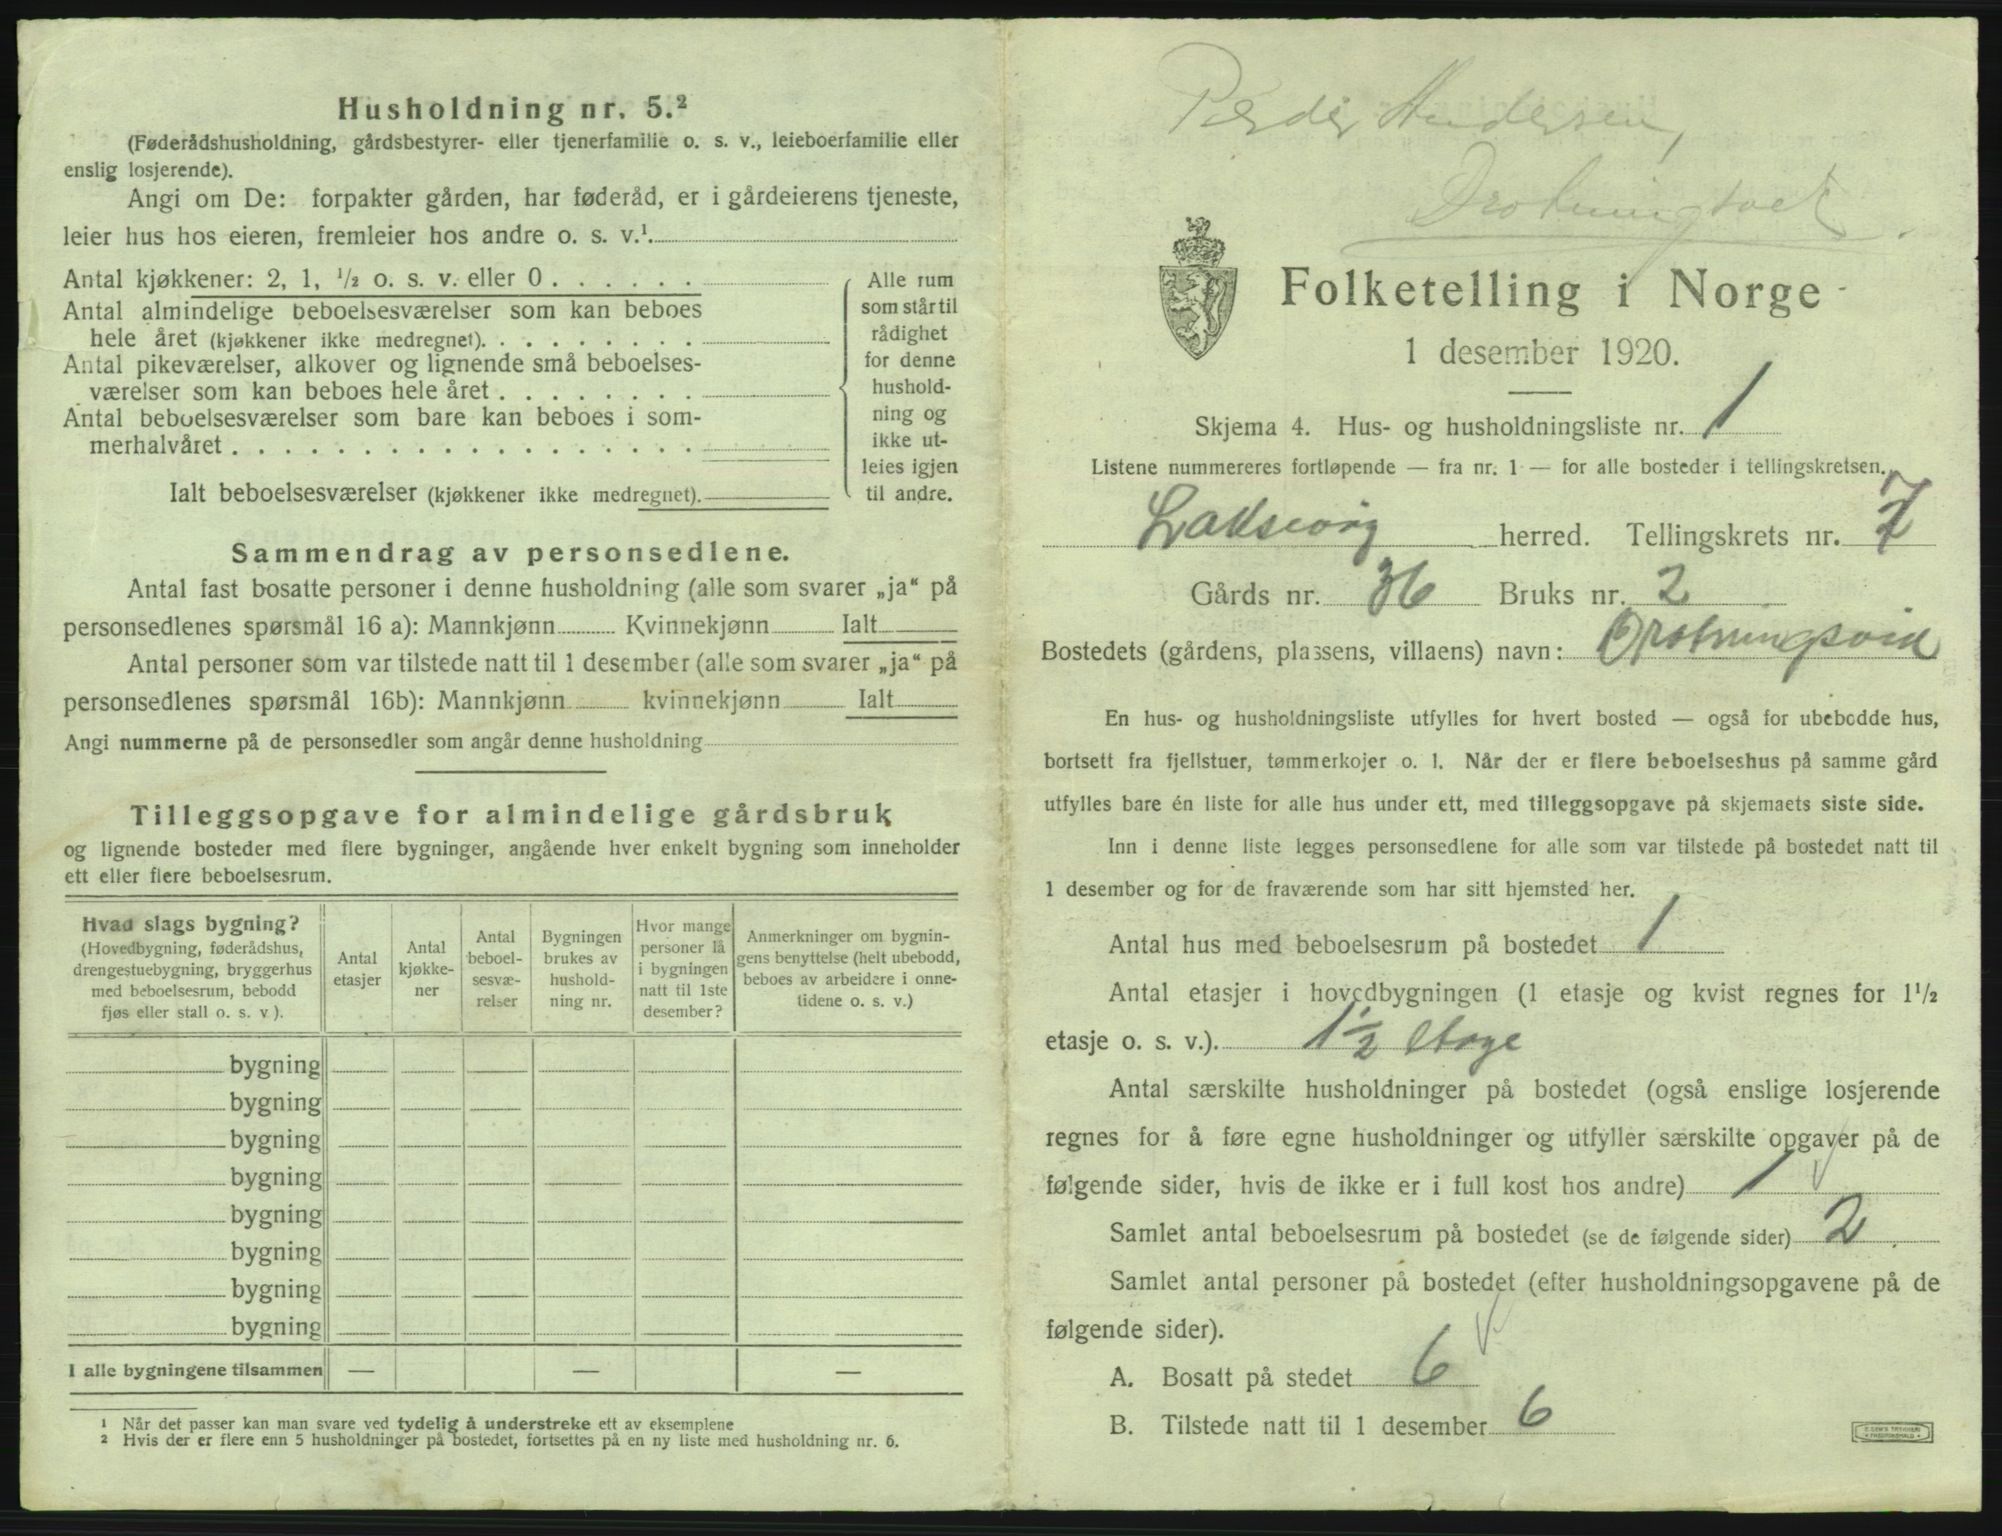 Husholdning nr. 5.²
(Føderådshusholdning, gårdsbestyrer- eller tjenerfamilie o. s. v., leieboerfamilie eller
enslig losjerende).
Angi om De: forpakter gården, har føderåd, er i gårdeierens tjeneste,
leier hus hos eieren, fremleier hos andre o. s. v.¹
Antal kjøkkener: 2, 1, ½ o. s. v. eller 0
Antal almindelige beboelsesværelser som kan beboes
hele året (kjøkkener ikke medregnet).
Antal pikeværelser, alkover og lignende små beboelses-
værelser som kan beboes hele året
Antal beboelsesværelser som bare kan beboes i som-
merhalvåret
Ialt beboelsesværelser (kjøkkener ikke medregnet).
Alle rum
som står til
rådighet
for denne
hushold-
ning og
ikke ut-
leies igjen
til andre.
Sammendrag av personsedlene.
Antal fast bosatte personer i denne husholdning (alle som svarer „ja“ på
personsedlenes spørsmål 16 a): Mannkjønn Kvinnekjønn Ialt
Antal personer som var tilstede natt til 1 desember (alle som svarer „ja“ på
personsedlenes spørsmål 16b): Mannkjønn kvinnekjønn Ialt
Angi nummerne på de personsedler som angår denne husholdning
Tilleggsopgave for almindelige gårdsbruk
og lignende bosteder med flere bygninger, angående hver enkelt bygning som inneholder
ett eller flere beboelsesrum.
Hvad slags bygning?
(Hovedbygning, føderådshus,
drengestuebygning, bryggerhus
med beboelsesrum, bebodd
fjøs eller stall o. s. v.).
Antal
etasjer
Antal
kjøkke-
ner
Antal
beboel-
sesvæ-
relser
Bygningen
brukes av
hushold-
ning nr.
Hvor mange
personer lå
i bygningen
natt til 1ste
desember?
Anmerkninger om bygnin-
gens benyttelse (helt ubebodd,
beboes av arbeidere i onne-
tidene o. s. v.)
bygning
bygning
bygning
bygning
bygning
bygning
bygning
bygning
I alle bygningene tilsammen — — —
¹ Når det passer kan man svare ved tydelig å understreke ett av eksemplene
² Hvis der er flere enn 5 husholdninger på bostedet, fortsettes på en ny liste med husholdning nr. 6.
Peder Andersen,
Folketelling i Norge
1 desember 1920.
Skjema 4. Hus- og husholdningsliste nr. 1
Listene nummereres fortløpende — fra nr. 1 — for alle bosteder i tellingskretsen.
Laksevåg herred. Tellingskrets nr. 7
Gårds nr. 36 Bruks nr. 2
Bostedets (gårdens, plassens, villaens) navn: Drotningsvik
En hus- og husholdningsliste utfylles for hvert bosted — også for ubebodde hus,
bortsett fra fjellstuer, tømmerkojer o. l. Når der er flere beboelseshus på samme gård
utfylles bare én liste for alle hus under ett, med tilleggsopgave på skjemaets siste side.
Inn i denne liste legges personsedlene for alle som var tilstede på bostedet natt til
1 desember og for de fraværende som har sitt hjemsted her.
Antal hus med beboelsesrum på bostedet 1
Antal etasjer i hovedbygningen (1 etasje og kvist regnes for 1½
etasje o. s. v.). 1½ Etage
Antal særskilte husholdninger på bostedet (også enslige losjerende
regnes for å føre egne husholdninger og utfyller særskilte opgaver på de
følgende sider, hvis de ikke er i full kost hos andre) 1
Samlet antal beboelsesrum på bostedet (se de følgende sider) 2
Samlet antal personer på bostedet (efter husholdningsopgavene på de
følgende sider).
A. Bosatt på stedet 6
B. Tilstede natt til 1 desember 6